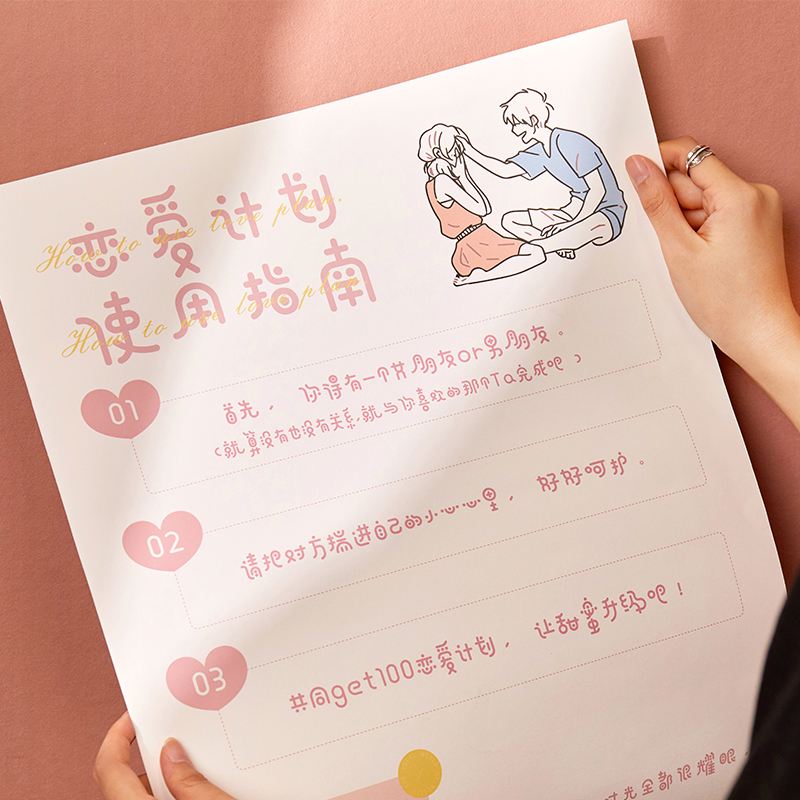 恋爱计划
How to use love plan.
使用指南
How to use love plan
01
首先，你得有一个女朋友or男朋友。
（就算没有也没有关系,就与你喜欢的那个Ta完成吧）
02
请把对方揣进自己的小心心里，好好呵护。
03
共同get100恋爱计划，让甜蜜升级吧！
时光全都很耀眼